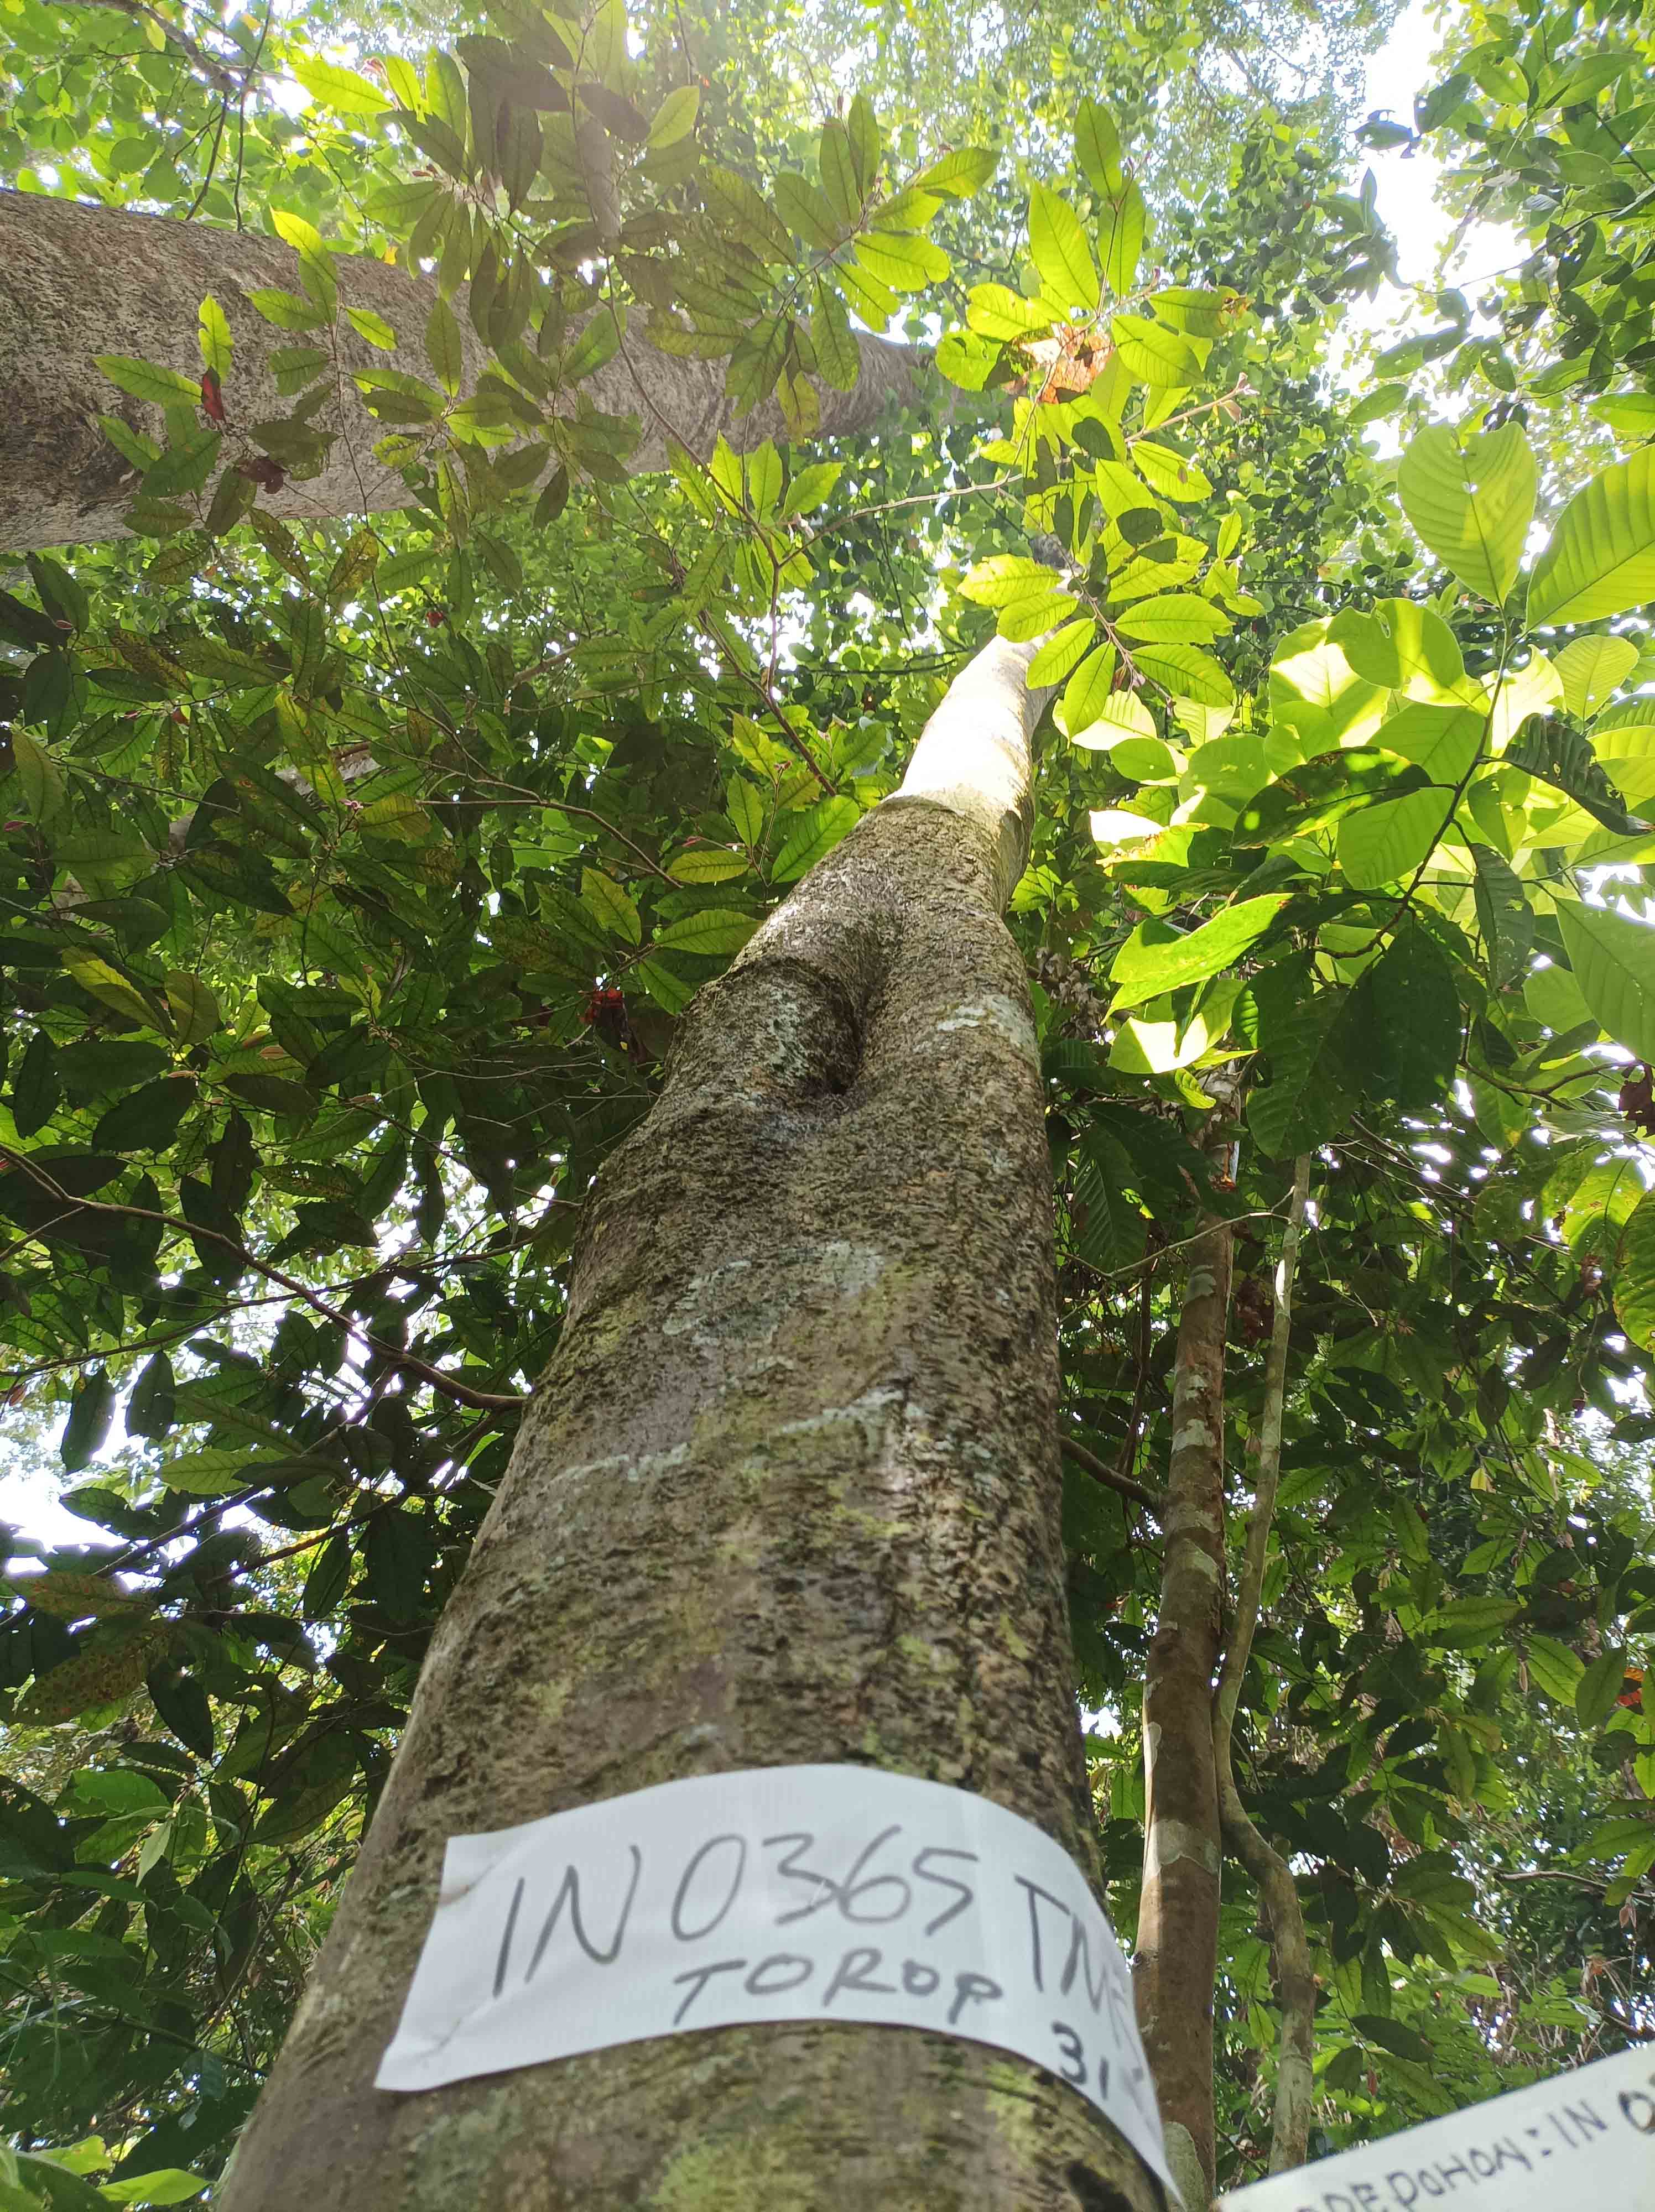 IN 0365
TOROP
31
DEDOHON: IN 0